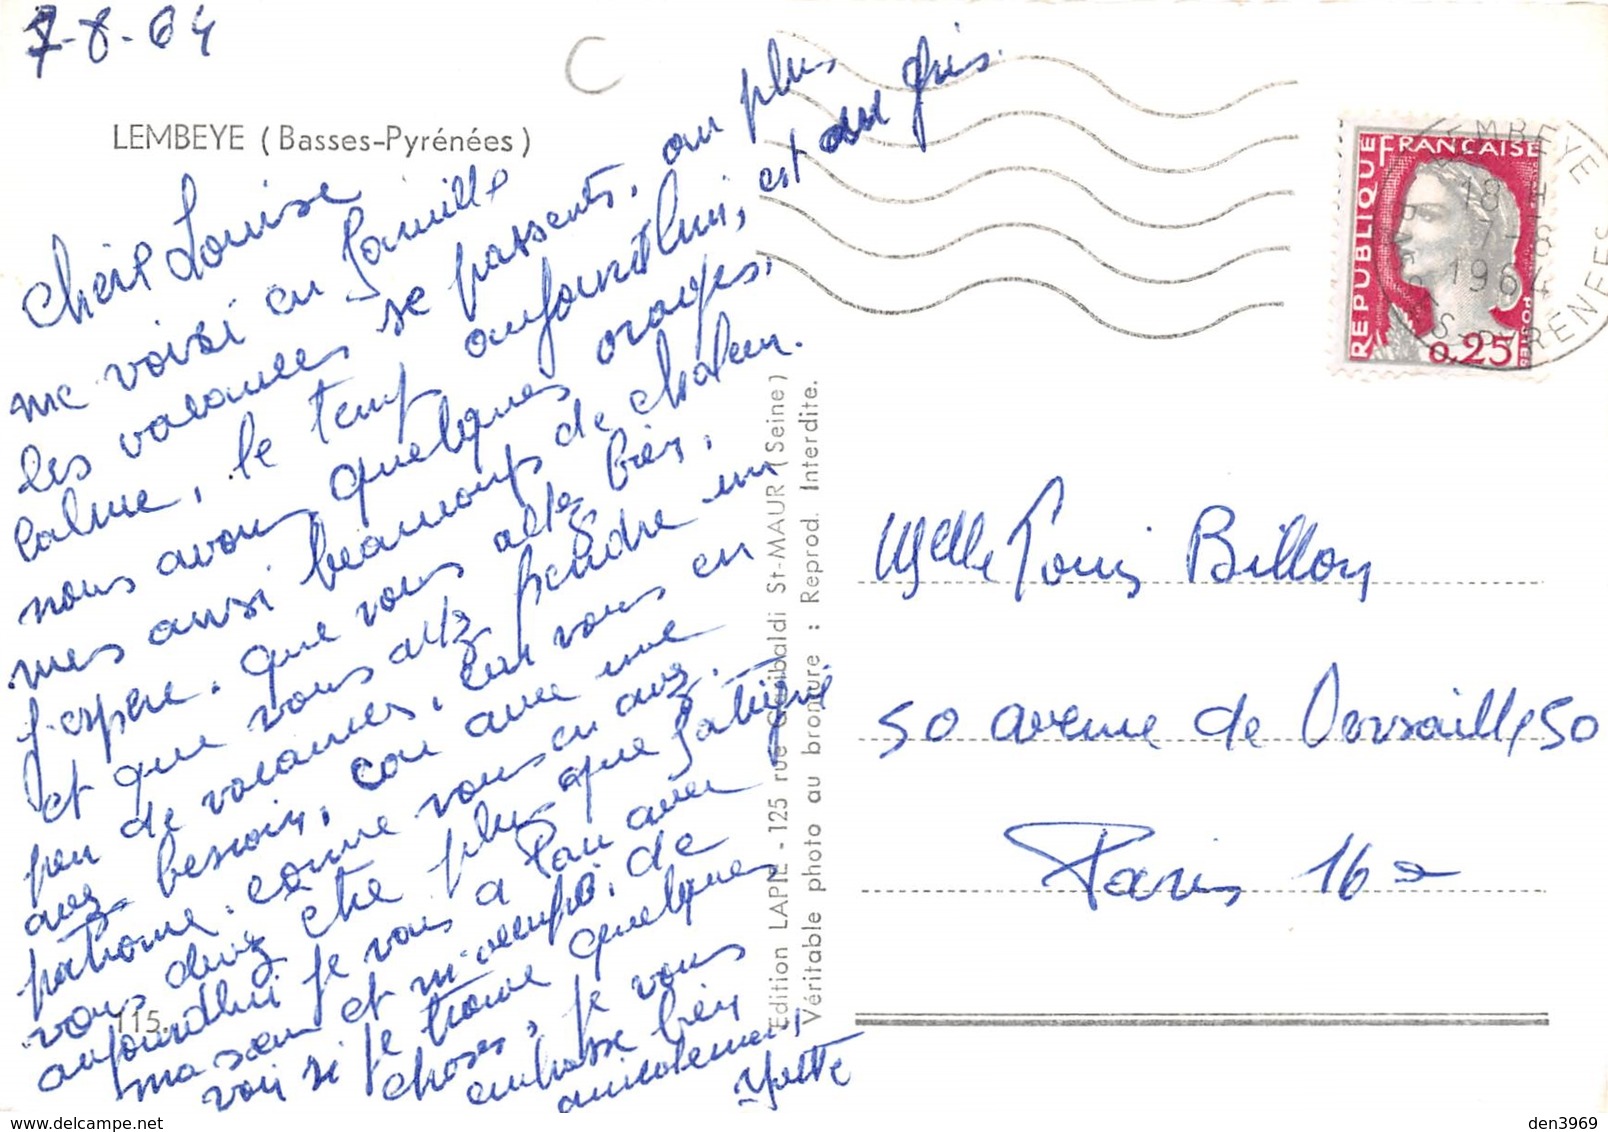 7-8-64
C
LEMBEYE (Basses-Pyrénées)
Cheie Louise
me voisi en famille
les vacances se passents. au plus
calme, le temp aujourd'hui, est au gris.
nous avons quelques orages,
mes aussi beaucoups de chaleur.
J'espere. que vous allez bien,
et que vous allez prendre un
peu de vacances, car vous en
avez besoin, car avec une
patronne. comme vous en avez.
vous devez etre plus que fatiguie
aujourdhui je vais a Pau avec
ma sœur et m'occupé, de
voir si je trouve quelques
choses, je vous
embrasse bien
amicalement,
Yvette
115.
Edition LAPIE - 125 rue Garibaldi St-MAUR (Seine)
Véritable photo au bromure : Reprod. Interdite.
REPUBLIQUE FRANÇAISE
POSTES
0,25
LEMBEYE
18 H
7-8
1964
BASSES-PYRENEES
Melle Louis Billon
50 avenue de Versailles 50
Paris 16e
den3969